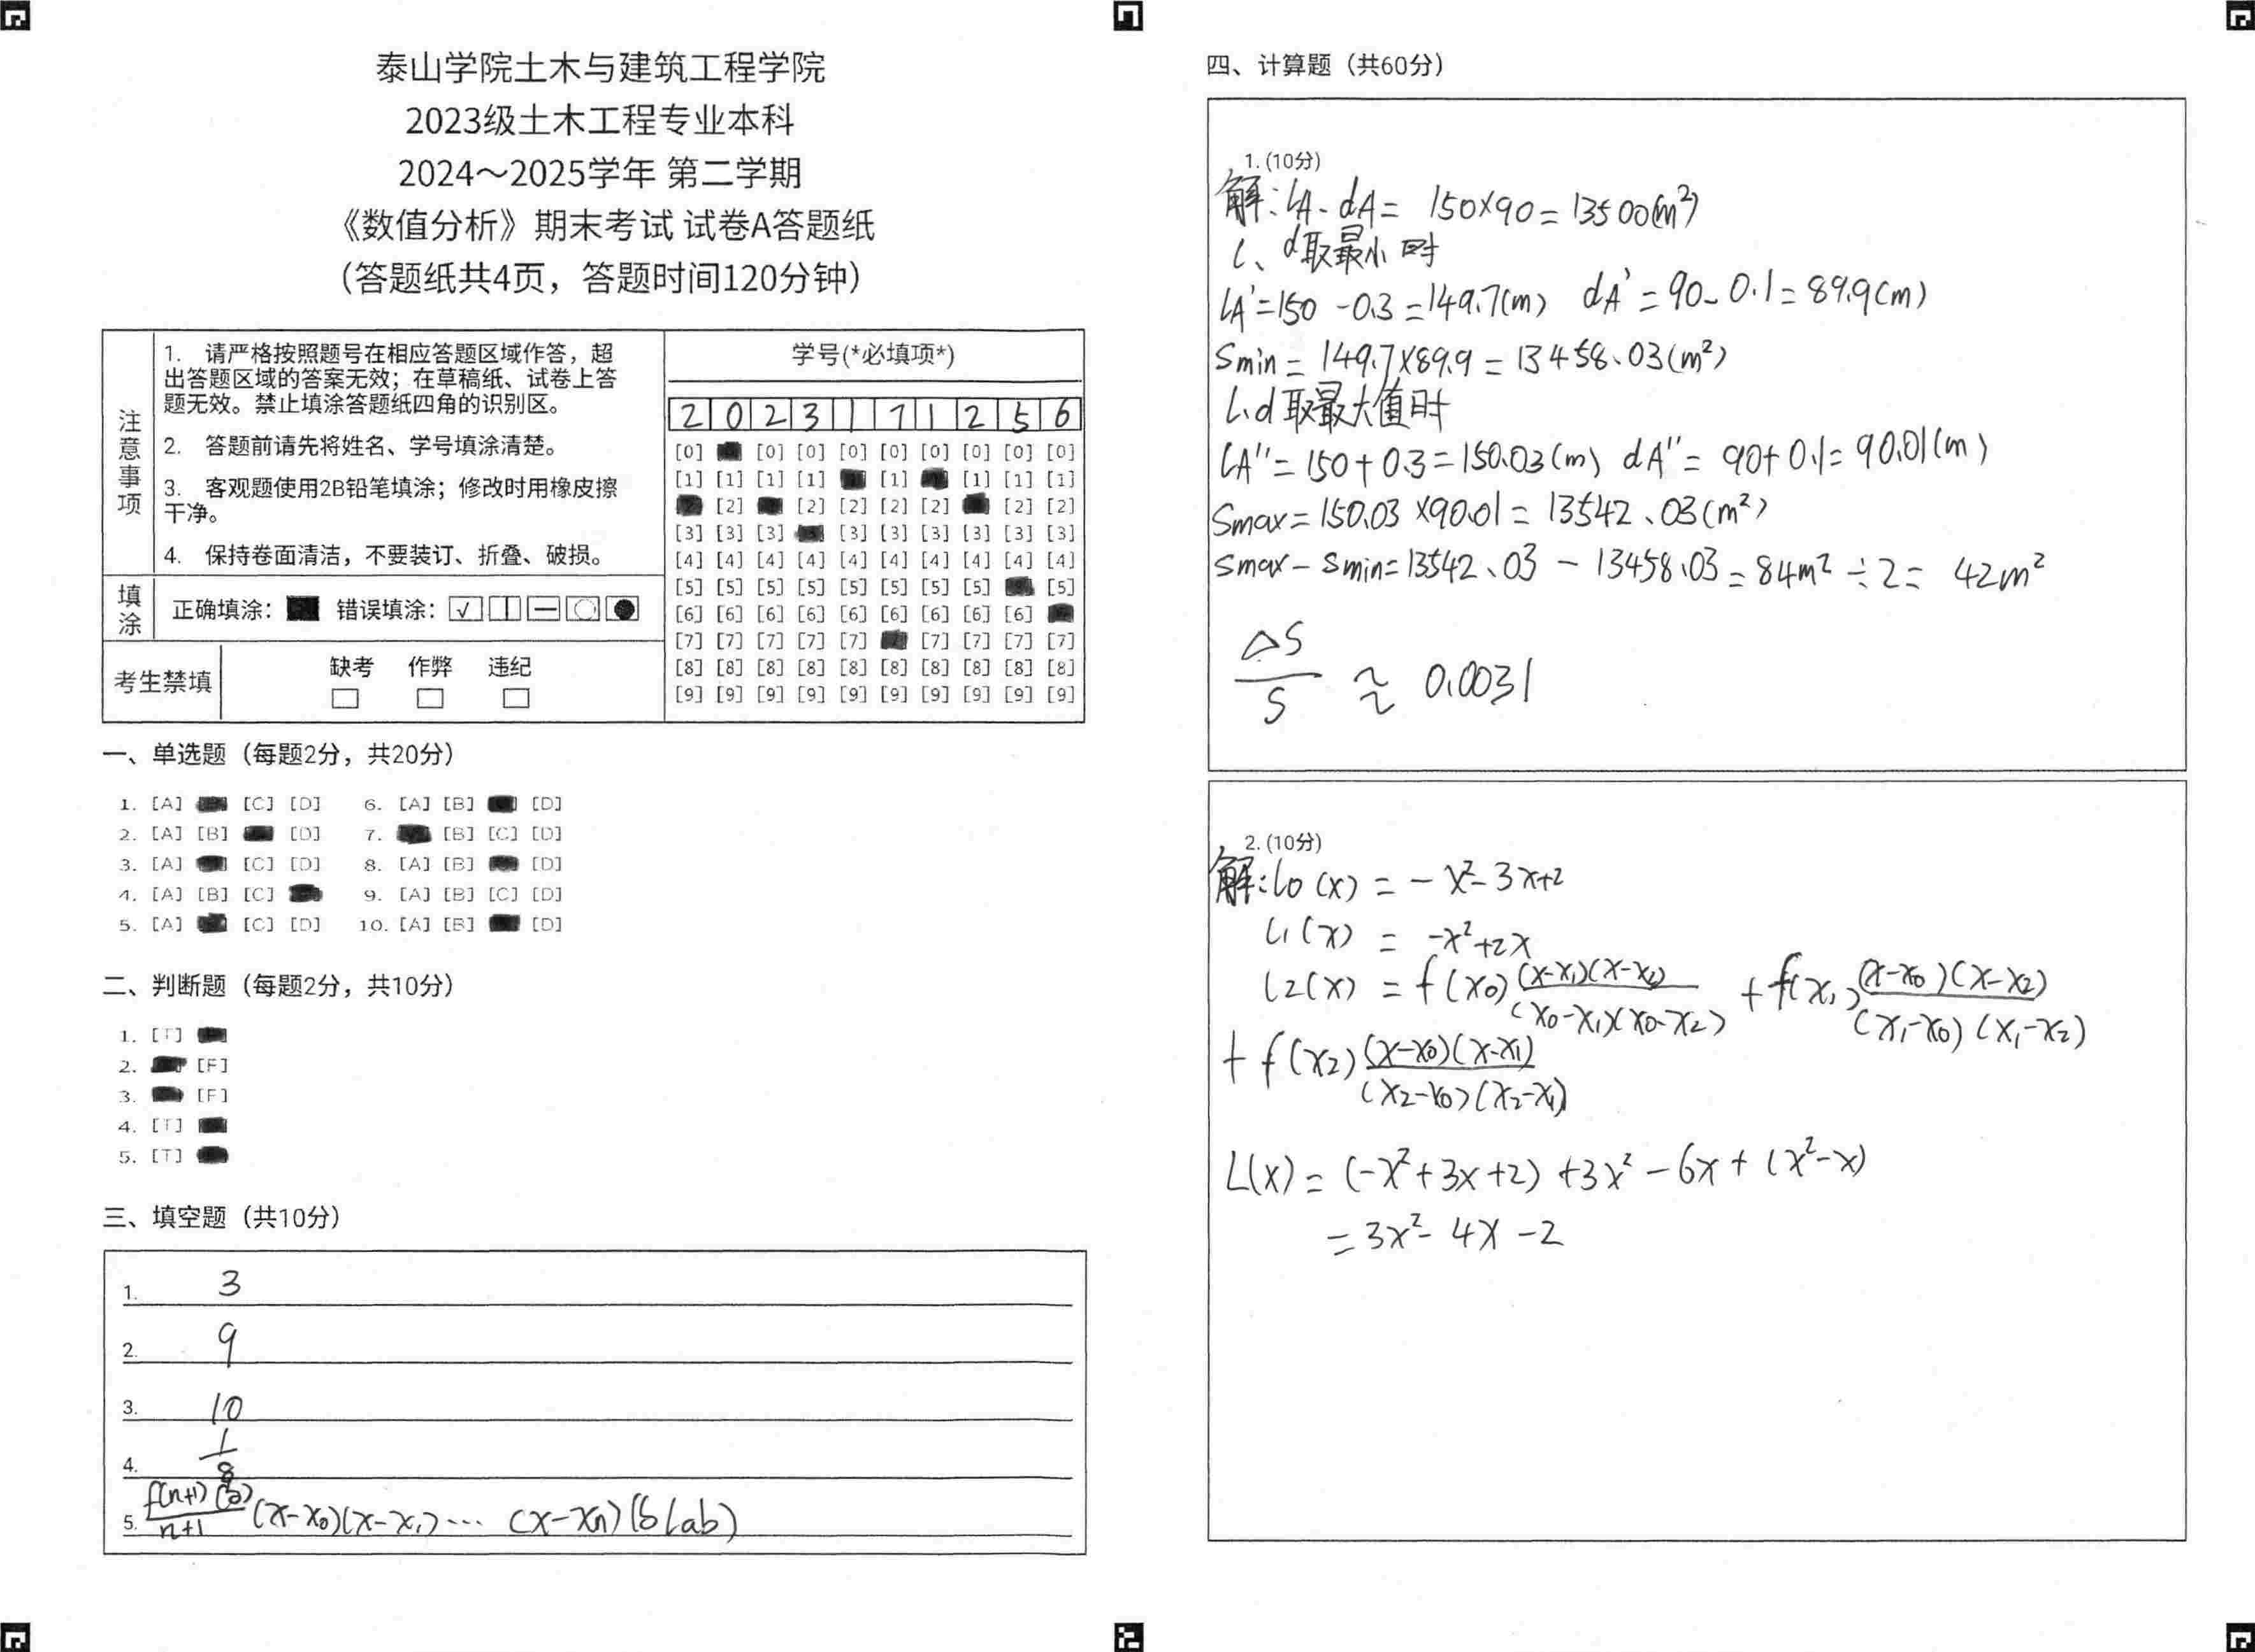 泰山学院土木与建筑工程学院
2023级土木工程专业本科
2024～2025学年 第二学期
《数值分析》期末考试 试卷A答题纸
（答题纸共4页，答题时间120分钟）
注意事项
1. 请严格按照题号在相应答题区域作答，超
出答题区域的答案无效；在草稿纸、试卷上答
题无效。禁止填涂答题纸四角的识别区。
2. 答题前请先将姓名、学号填涂清楚。
3. 客观题使用2B铅笔填涂；修改时用橡皮擦
干净。
4. 保持卷面清洁，不要装订、折叠、破损。
填涂
正确填涂： 错误填涂：
考生禁填
缺考 作弊 违纪
学号(*必填项*)
2 0 2 3 1 7 1 2 5 6
[0] [0] [0] [0] [0] [0] [0] [0] [0]
[1] [1] [1] [1] [1] [1] [1] [1]
[2] [2] [2] [2] [2] [2] [2]
[3] [3] [3] [3] [3] [3] [3] [3] [3]
[4] [4] [4] [4] [4] [4] [4] [4] [4] [4]
[5] [5] [5] [5] [5] [5] [5] [5] [5]
[6] [6] [6] [6] [6] [6] [6] [6] [6]
[7] [7] [7] [7] [7] [7] [7] [7] [7]
[8] [8] [8] [8] [8] [8] [8] [8] [8] [8]
[9] [9] [9] [9] [9] [9] [9] [9] [9] [9]
一、单选题（每题2分，共20分）
1. [A] [C] [D] 6. [A] [B] [D]
2. [A] [B] [D] 7. [B] [C] [D]
3. [A] [C] [D] 8. [A] [B] [D]
4. [A] [B] [C] 9. [A] [B] [C] [D]
5. [A] [C] [D] 10. [A] [B] [D]
二、判断题（每题2分，共10分）
1. [T]
2. [F]
3. [F]
4. [T]
5. [T]
三、填空题（共10分）
1. 3
2. 9
3. 10
4. 1/8
5. (x-x0)(x-x1)… (x-xn)
四、计算题（共60分）
1. (10分)
解: LA·dA = 150×90 = 13500(m²)
L、d取最小时
LA'=150-0.3=149.7(m) dA'=90-0.1=89.9(m)
Smin = 149.7×89.9 = 13458.03(m²)
L、d取最大值时
LA''=150+0.3=150.03(m) dA''=90+0.1=90.01(m)
Smax=150.03×90.01=13542.03(m²)
Smax-Smin=13542.03-13458.03=84m²÷2=42m²
ΔS/S ≈ 0.0031
2. (10分)
解: L0(x) = -x²-3x+2
L1(x) = -x²+2x
L2(x) = f(x0) (x-x1)(x-x2)/(x0-x1)(x0-x2) + f(x1) (x-x0)(x-x2)/(x1-x0)(x1-x2)
+ f(x2) (x-x0)(x-x1)/(x2-x0)(x2-x1)
L(x) = (-x²+3x+2)+3x²-6x+(x²-x)
=3x²-4x-2